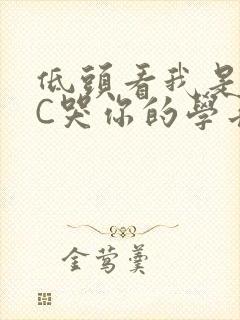 低頭看我是
C哭你的學
金莺羹